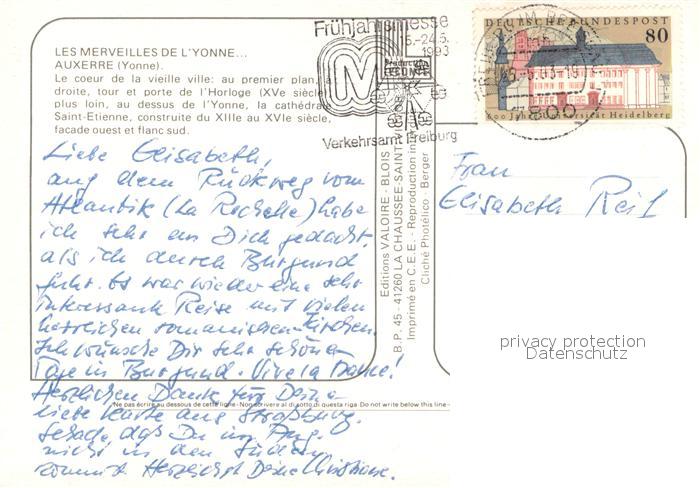 LES MERVEILLES DE L'YONNE...
AUXERRE (Yonne).
Le coeur de la vieille ville: au premier plan, à
droite, tour et porte de l'Horloge (XVe siècle)
plus loin, au dessus de l'Yonne, la cathédrale
Saint-Etienne, construite du XIIIe au XVIe siècle,
facade ouest et flanc sud.
Frühjahrsmesse
5.-24.5.
1993
Verkehrsamt Freiburg
DEUTSCHE BUNDESPOST
80
600 Jahre Universität Heidelberg
Liebe Elisabeth,
auf dem Rückweg vom
Atlantik (La Rochelle) habe
ich sehr an Dich gedacht,
als ich durch Burgund
fuhr. Es war wieder eine sehr
interessante Reise mit vielen
herrlichen romanischen Kirchen.
Ich wünsche Dir sehr schöne
Tage in Burgund. Vive la France!
Herzlichen Dank für Deine
liebe Karte aus Straßburg.
Schade, daß Du im Aug.
nicht in den Süden
kommst. Herzlichst Deine Christiane.
Ne pas écrire au dessous de cette ligne - Non scrivere al di sotto di questa riga - Do not write below this line
Editions VALOIRE - BLOIS
B.P. 45 - 41260 LA CHAUSSEE-SAINT-VICTOR
Imprimé en C.E.E. - Reproduction
Cliché Photélico - Berger
Frau
Elisabeth
privacy protection
Datenschutz